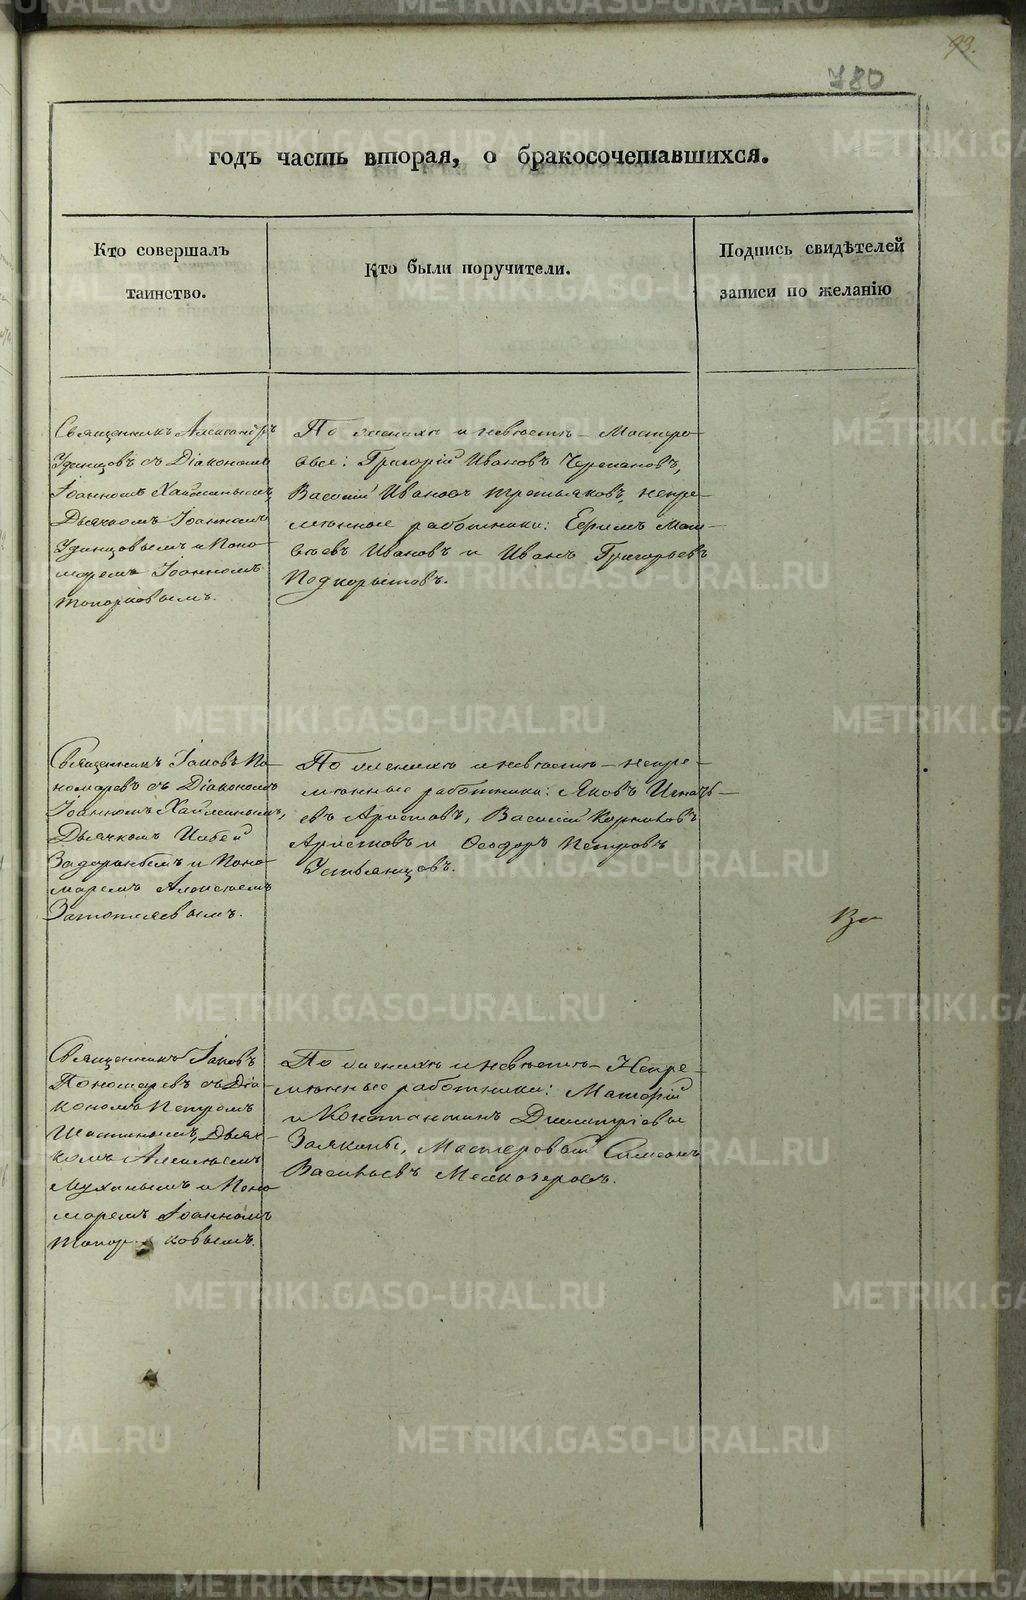 93.
780
годъ часть вторая, о бракосочетавшихся.
Кто совершалъ
таинство.
Кто были поручители.
Подпись свидѣтелей
записи по желанію
Священникъ Александръ
Удинцовъ съ Діакономъ
Іоанномъ Хаймынымъ,
Дьячкомъ Іоанномъ
Удинцовымъ и Поно-
маремъ Іоанномъ
Топорковымъ.
По женихѣ и невѣстѣ – Мастеро-
вые: Григорій Ивановъ Черепановъ,
Василій Ивановъ Третьяковъ, непре-
мѣнные работники: Ефимъ Мат-
вѣевъ Ивановъ и Иванъ Григорьевъ
Подкорытовъ.
Священникъ Іаковъ По-
номаревъ съ Діакономъ
Іоанномъ Хаймынымъ,
Дьячкомъ
и Поно-
маремъ Алексѣемъ
По женихѣ и невѣстѣ – непре-
мѣнные работники: Яковъ Игнать-
евъ Аристовъ, Василій Корниловъ
Аристовъ и Ѳеодоръ Петровъ
Устьянцовъ.
Священникъ Іаковъ
Пономаревъ съ Діа-
кономъ Петромъ
Дьяч-
комъ
Мухинымъ и Поно-
маремъ Іоанномъ
Топорковымъ.
По женихѣ и невѣстѣ – Непре-
мѣнные работники:
и Константинъ Димитріевы
Мастеровой Симеонъ
Васильевъ Мелкозеровъ.
METRIKI.GASO-URAL.RU